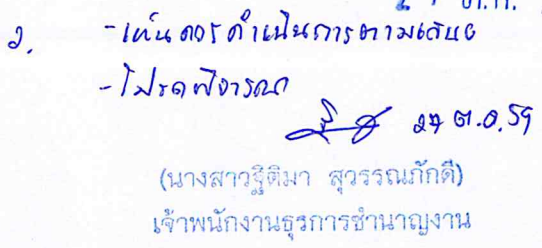 2. - เห็นควรดำเนินการตามเสนอ
- โปรดพิจารณา
27 ต.ค. 59
(นางสาวฐิติมา สุวรรณภักดี)
เจ้าพนักงานธุรการชำนาญงาน